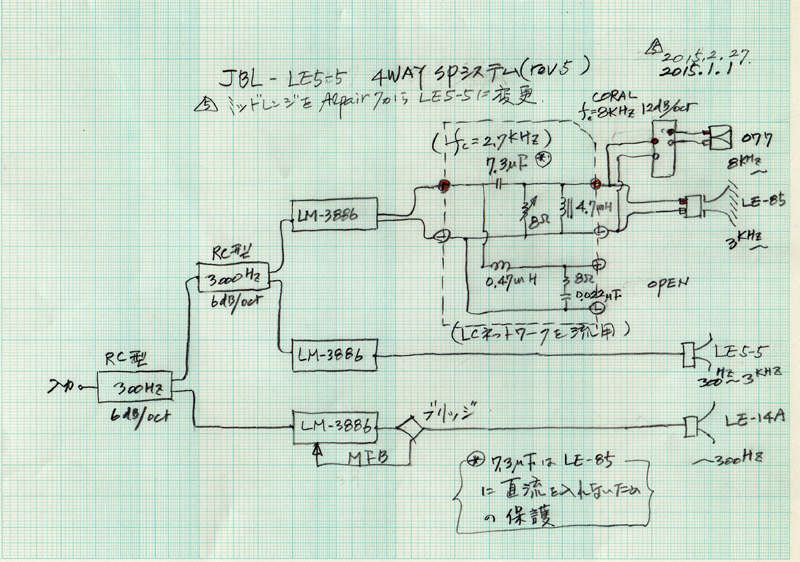 JBL - LE5-5 4WAY SPシステム(rev5)
△5 2015.2.27.
2015.1.1
△5 ミッドレンジをAlpair7からLE5-5に変更.
CORAL
fc=8KHz 12dB/oct
077
8KHz~
(fc=2.7KHz)
7.3μF *
LM-3886
8Ω
4.7mH
LE-85
3KHz~
RC型
3000Hz
6dB/oct
0.47mH
8Ω
0.022μF
OPEN
(LCネットワークを流用)
RC型
入力
300Hz
6dB/oct
LM-3886
LE5-5
300Hz~3KHz
LM-3886
ブリッジ
MFB
LE-14A
~300Hz
* 7.3μFはLE-85
に直流を入れないため
の保護